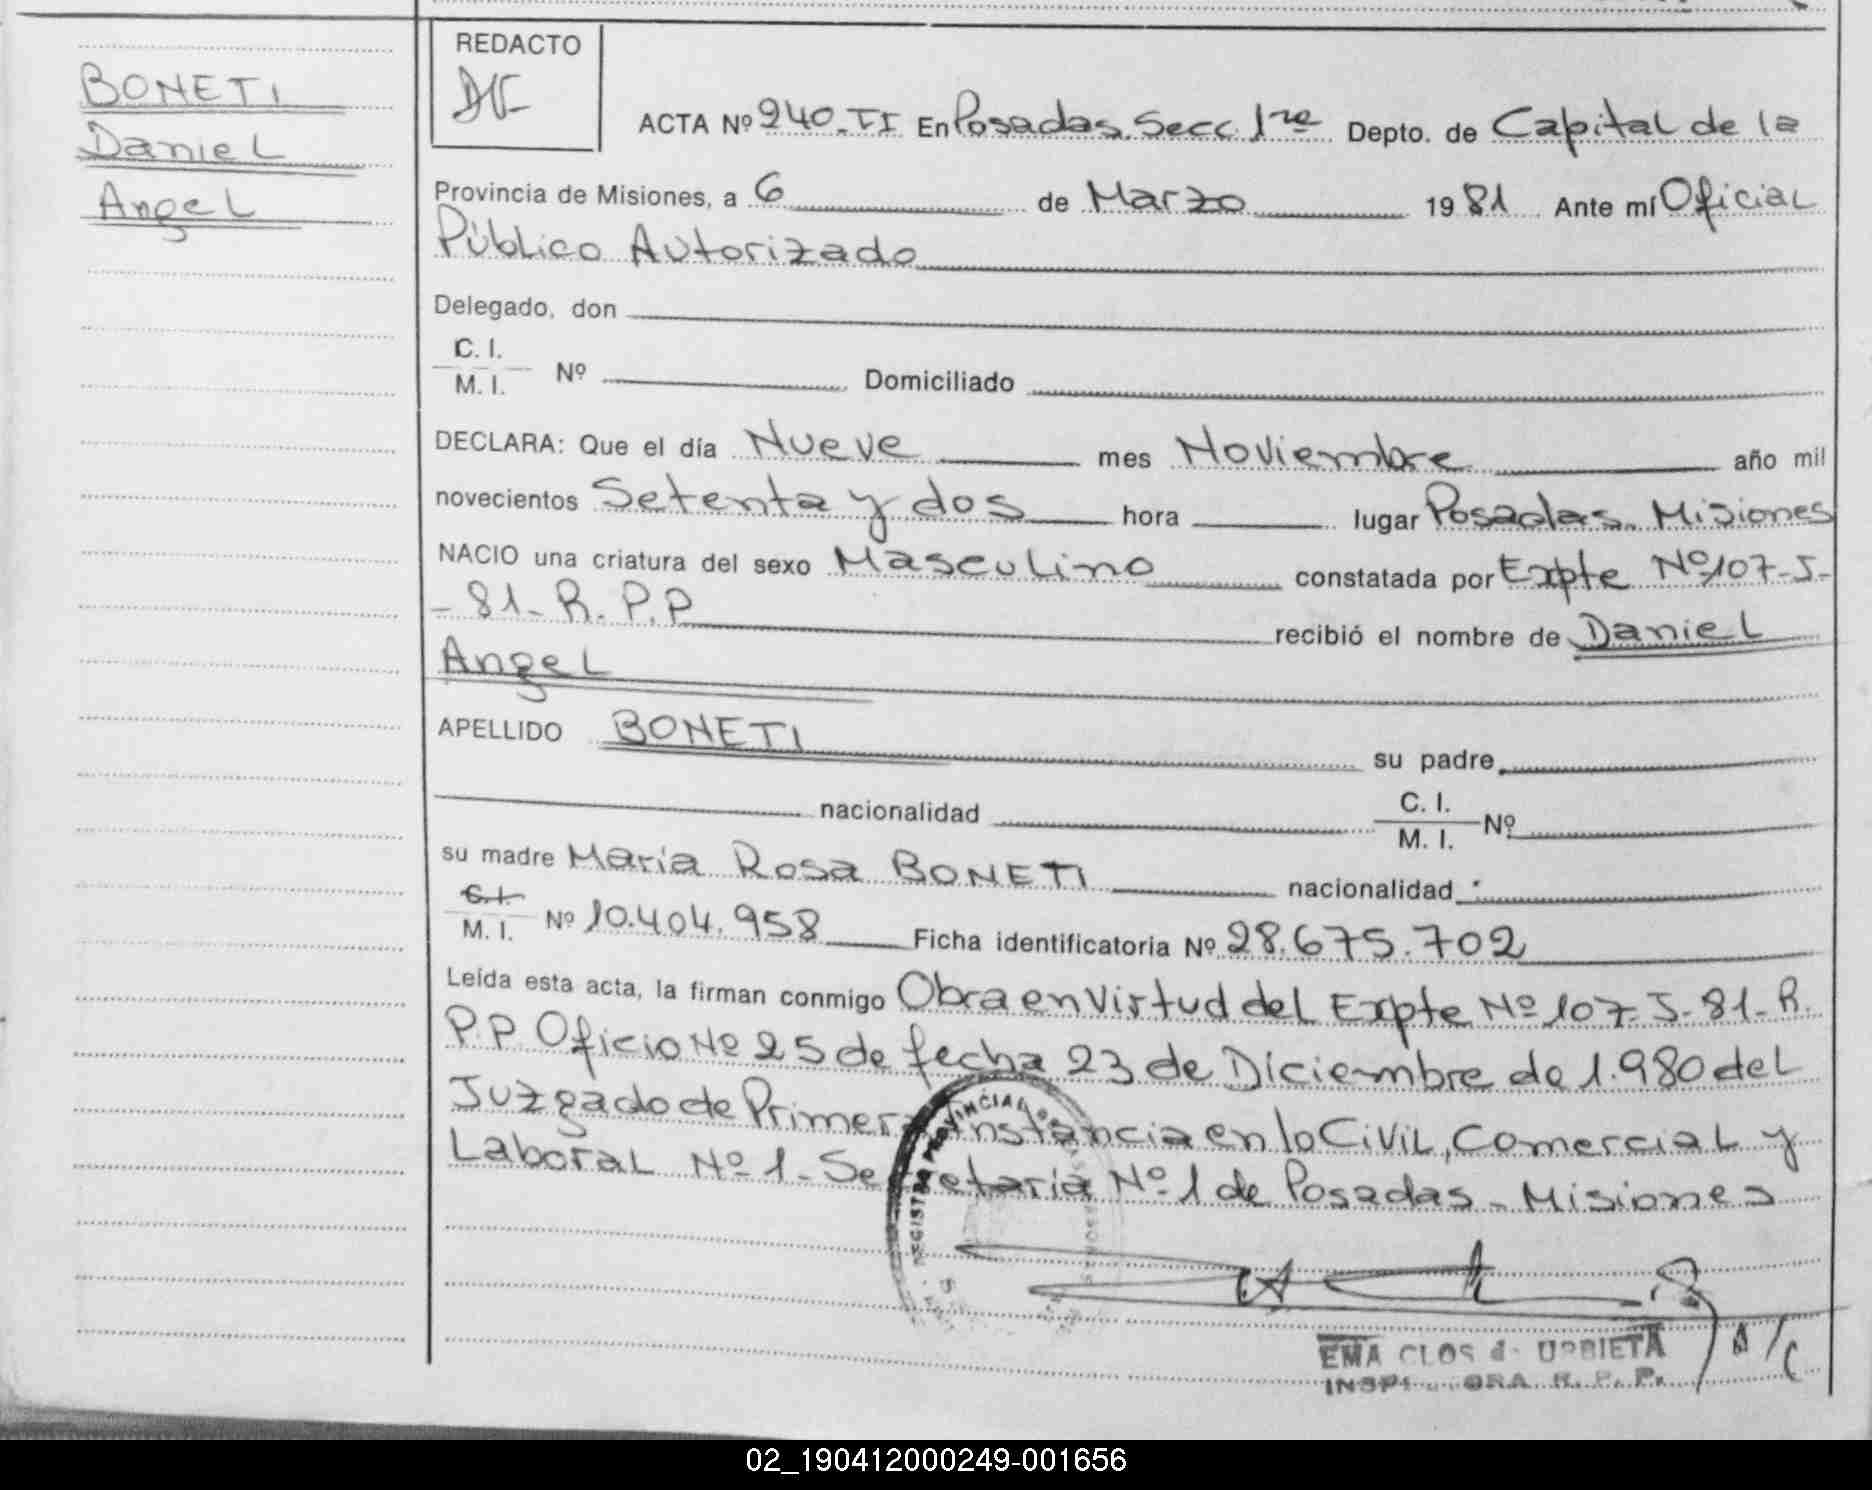 BONETI
Daniel
Angel
REDACTO
ACTA Nº 240-TI En Posadas. Secc. 1ra Depto. de Capital de la
Provincia de Misiones, a 6 de Marzo 1981 Ante mí Oficial
Público Autorizado
Delegado, don
C. I.
M. I. Nº Domiciliado
DECLARA: Que el día Nueve mes Noviembre año mil
novecientos Setenta y dos hora lugar Posadas. Misiones
NACIO una criatura del sexo Masculino constatada por Expte Nº 107-J-
-81-R.P.P recibió el nombre de Daniel
Angel
APELLIDO BONETI su padre
nacionalidad C. I.
M. I. Nº
su madre Maria Rosa BONETI nacionalidad
C.I.
M. I. Nº 10.404.958 Ficha identificatoria Nº 28.675.702
Leída esta acta, la firman conmigo Obra en Virtud del Expte Nº 107-J-81-R.
P.P. Oficio Nº 25 de fecha 23 de Diciembre de 1.980 del
Juzgado de Primera Instancia en lo Civil, Comercial y
Laboral Nº 1-Secretaria Nº 1 de Posadas - Misiones
REGISTRO PROVINCIAL
EMA CLOS de URBIETA
R. P. P.
02_190412000249-001656